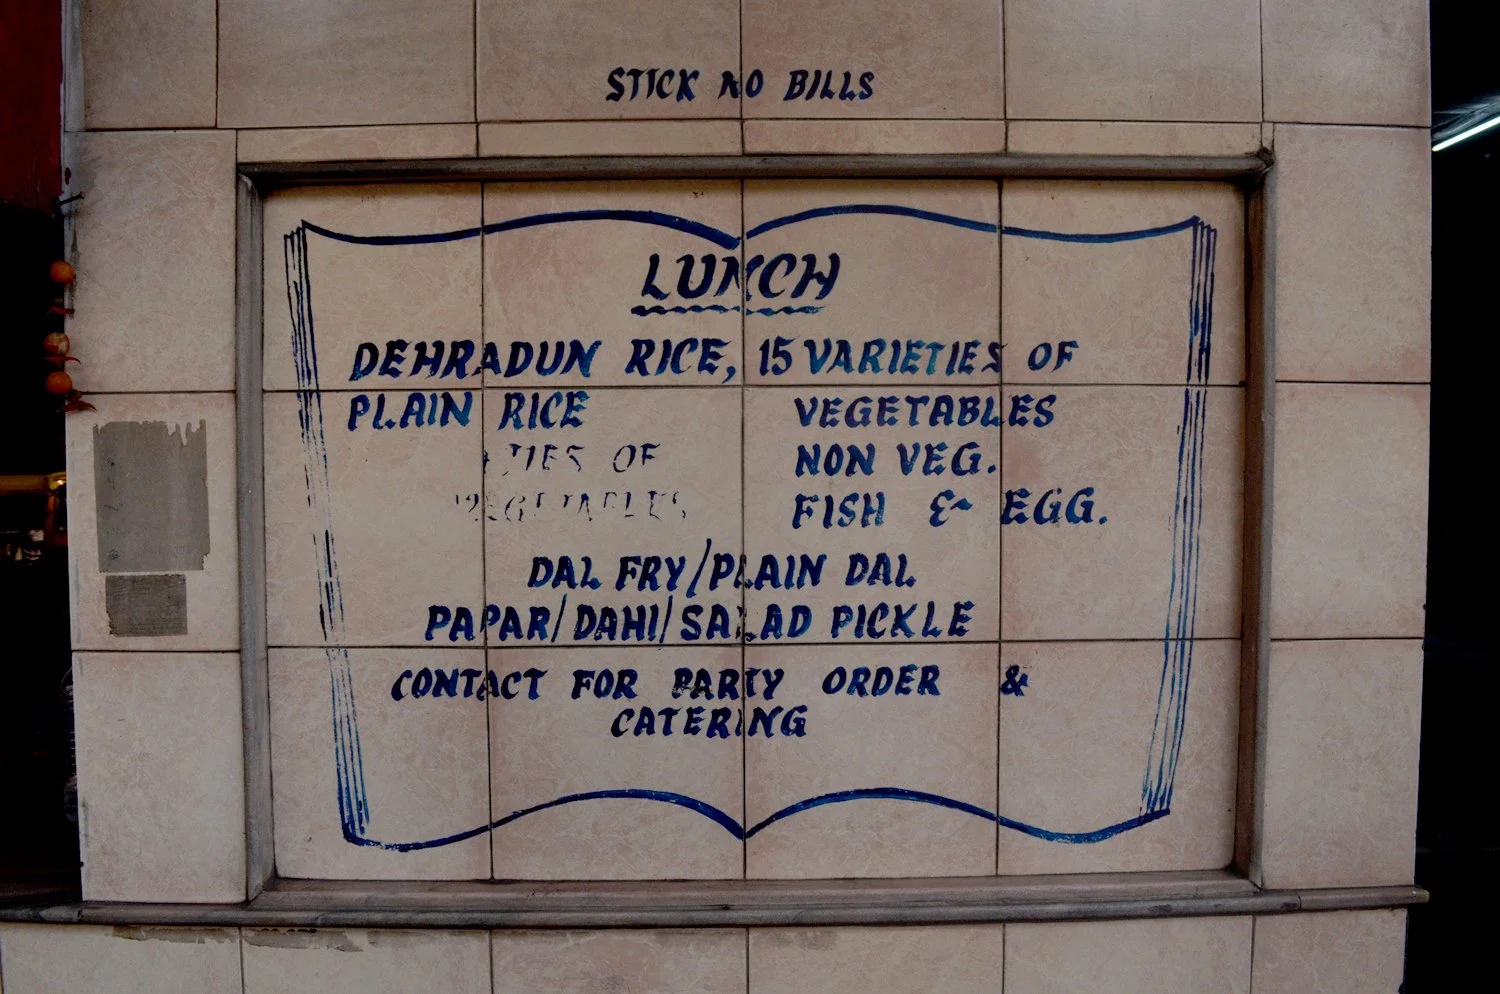 STICK NO BILLS
LUNCH
DEHRADUN RICE, 15 VARIETIES OF
PLAIN RICE VEGETABLES
OF NON VEG.
VEGETABLES FISH & EGG.
DAL FRY/PLAIN DAL
PAPAR/DAHI/SALAD PICKLE
CONTACT FOR PARTY ORDER &
CATERING